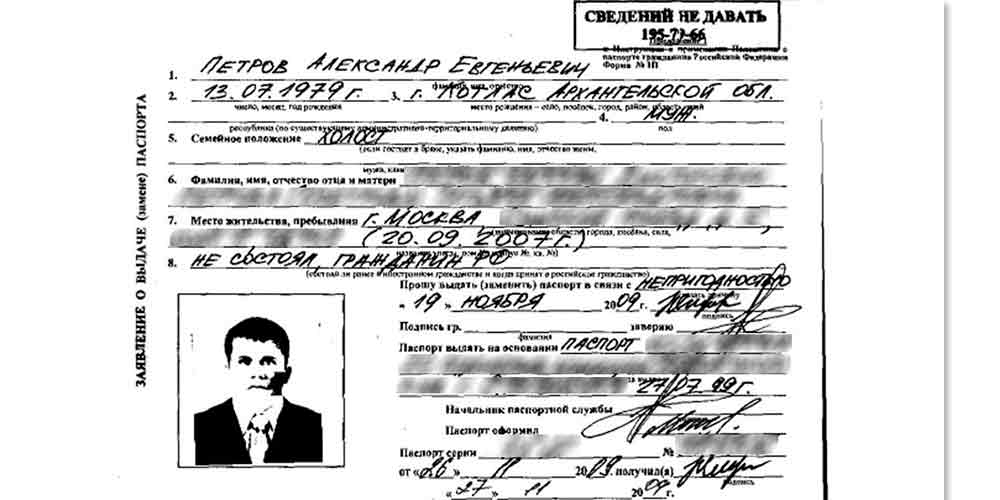 СВЕДЕНИЙ НЕ ДАВАТЬ
195-77-66
паспорте гражданина Российской Федерации
Форма № 1П
ЗАЯВЛЕНИЕ О ВЫДАЧЕ (замене) ПАСПОРТА
1. ПЕТРОВ АЛЕКСАНДР ЕВГЕНЬЕВИЧ
2. 13.07.1979 г. 3. г. КОТЛАС АРХАНГЕЛЬСКОЙ ОБЛ.
число, месяц, год рождения место рождения – село, посёлок, город, район, область, край
4. МУЖ.
республика (по существующему административно-территориальному делению) пол
5. Семейное положение ХОЛОСТ
(если состоит в браке, указать фамилию, имя, отчество жены,
мужа,
6. Фамилия, имя, отчество отца и матери
7. Место жительства, пребывания г. МОСКВА
города, посёлка, села,
(20.09.2007г.)
8. НЕ СОСТОЯЛ, ГРАЖДАНИН РФ
(состоял ли ранее в иностранном гражданстве и когда принят в российское гражданство)
Прошу выдать (заменить) паспорт в связи с НЕПРИГОДНОСТЬЮ
« 19 » НОЯБРЯ 2009 г.
подпись
Подпись гр. заверяю
фамилия
Паспорт выдать на основании ПАСПОРТ
27/07.99г.
Начальник паспортной службы
Паспорт оформил
Паспорт серии №
от « 26 » 11 2009. получил(а)
подпись
« 27 » 11 2009 г.